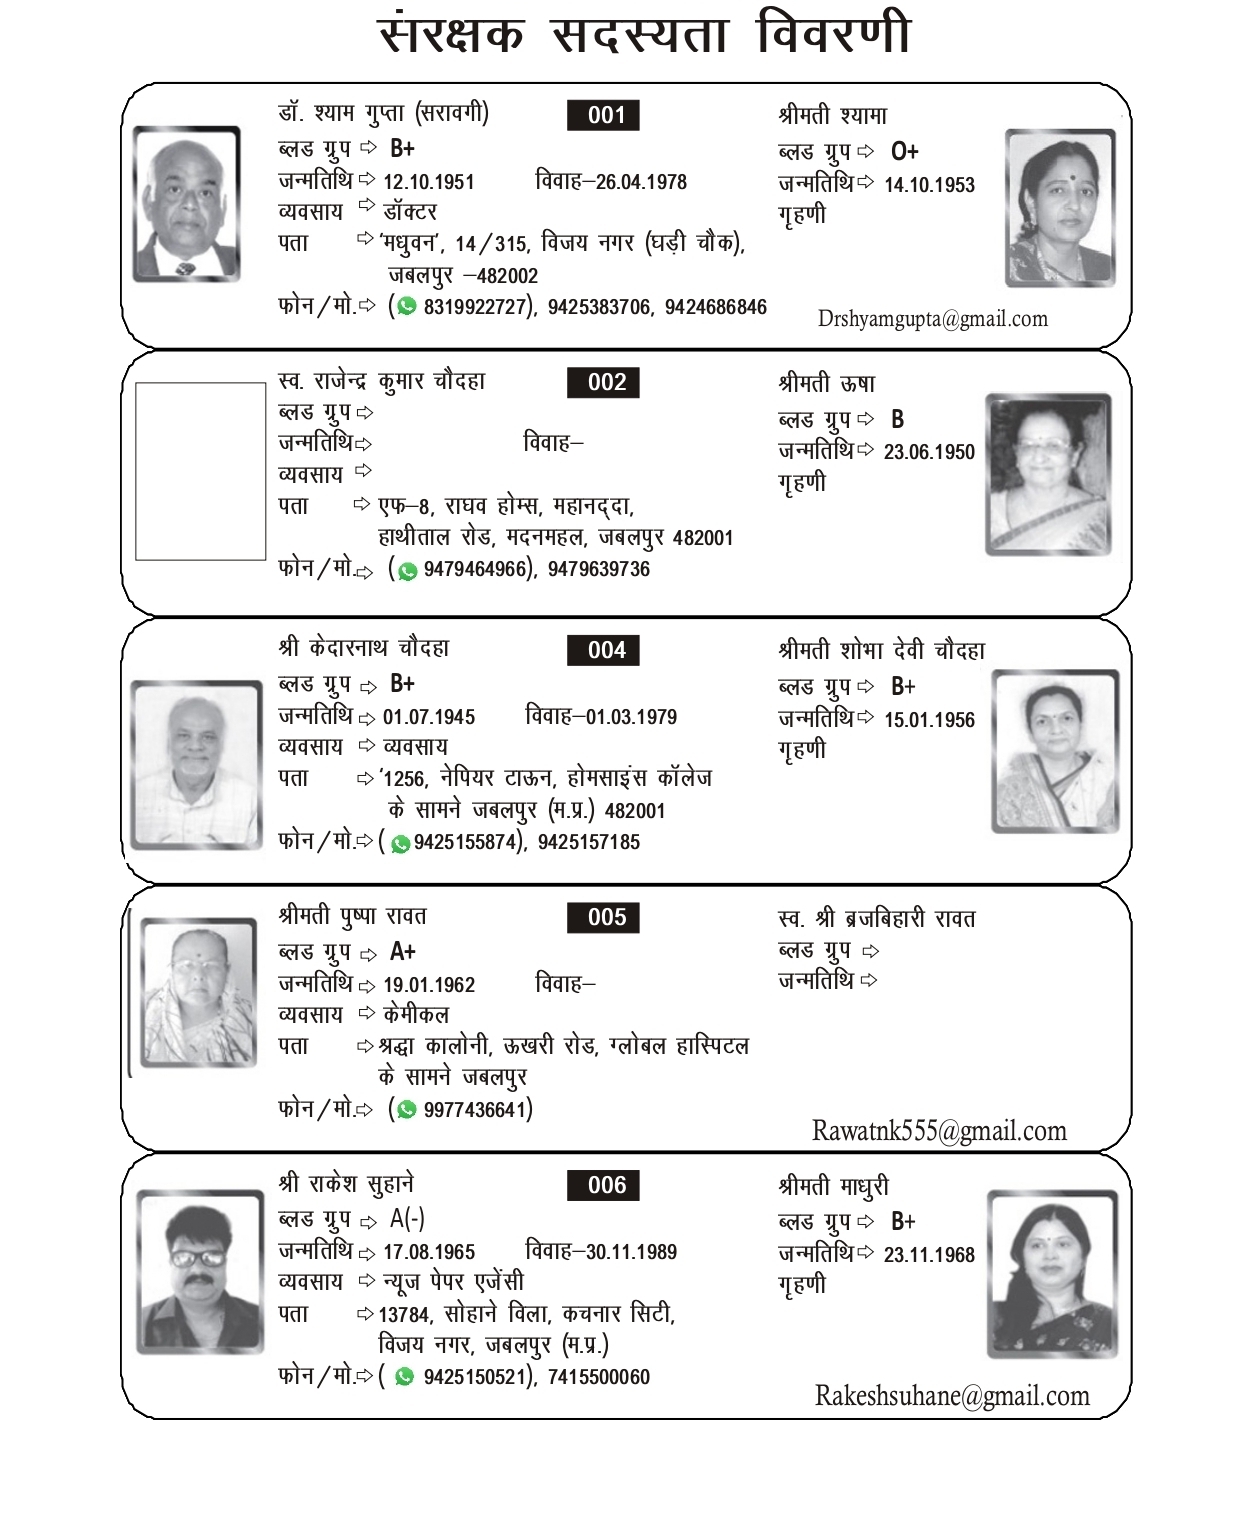 संरक्षक सदस्यता विवरणी
डॉ. श्याम गुप्ता (सरावगी) 001 श्रीमती श्यामा
ब्लड ग्रुप ⇨ B+ ब्लड ग्रुप ⇨ O+
जन्मतिथि ⇨ 12.10.1951 विवाह–26.04.1978 जन्मतिथि ⇨ 14.10.1953
व्यवसाय ⇨ डॉक्टर गृहणी
पता ⇨ 'मधुवन', 14/315, विजय नगर (घड़ी चौक),
जबलपुर –482002
फोन/मो.⇨ (8319922727), 9425383706, 9424686846
Drshyamgupta@gmail.com
स्व. राजेन्द्र कुमार चौदहा 002 श्रीमती ऊषा
ब्लड ग्रुप ⇨ ब्लड ग्रुप ⇨ B
जन्मतिथि ⇨ विवाह– जन्मतिथि ⇨ 23.06.1950
व्यवसाय ⇨ गृहणी
पता ⇨ एफ–8, राघव होम्स, महानद्दा,
हाथीताल रोड, मदनमहल, जबलपुर 482001
फोन/मो.⇨ (9479464966), 9479639736
श्री केदारनाथ चौदहा 004 श्रीमती शोभा देवी चौदहा
ब्लड ग्रुप ⇨ B+ ब्लड ग्रुप ⇨ B+
जन्मतिथि ⇨ 01.07.1945 विवाह–01.03.1979 जन्मतिथि ⇨ 15.01.1956
व्यवसाय ⇨ व्यवसाय गृहणी
पता ⇨ '1256, नेपियर टाऊन, होमसाइंस कॉलेज
के सामने जबलपुर (म.प्र.) 482001
फोन/मो.⇨ (9425155874), 9425157185
श्रीमती पुष्पा रावत 005 स्व. श्री ब्रजबिहारी रावत
ब्लड ग्रुप ⇨ A+ ब्लड ग्रुप ⇨
जन्मतिथि ⇨ 19.01.1962 विवाह– जन्मतिथि ⇨
व्यवसाय ⇨ केमीकल
पता ⇨ श्रद्धा कालोनी, ऊखरी रोड, ग्लोबल हास्पिटल
के सामने जबलपुर
फोन/मो.⇨ (9977436641)
Rawatnk555@gmail.com
श्री राकेश सुहाने 006 श्रीमती माधुरी
ब्लड ग्रुप ⇨ A(-) ब्लड ग्रुप ⇨ B+
जन्मतिथि ⇨ 17.08.1965 विवाह–30.11.1989 जन्मतिथि ⇨ 23.11.1968
व्यवसाय ⇨ न्यूज पेपर एजेंसी गृहणी
पता ⇨ 13784, सोहाने विला, कचनार सिटी,
विजय नगर, जबलपुर (म.प्र.)
फोन/मो.⇨ (9425150521), 7415500060
Rakeshsuhane@gmail.com